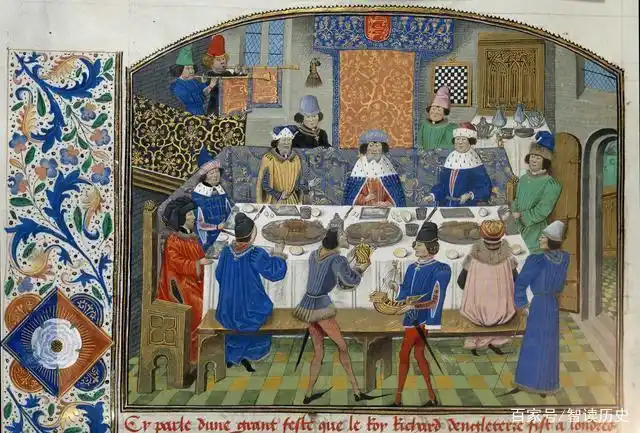 Cy parle dune grant feste que le Roy Richard dengleterre fist a londres
百家号/智读历史